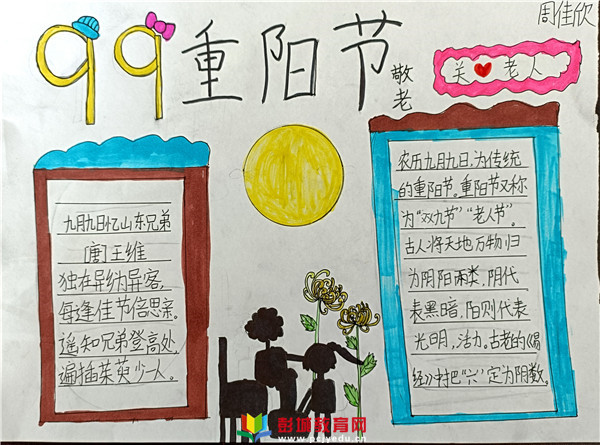 周佳欣
99重阳节
敬老
关❤老人
九月九日忆山东兄弟
[唐]王维
独在异乡为异客，
每逢佳节倍思亲。
遥知兄弟登高处，
遍插茱萸少一人。
农历九月九日，为传统
的重阳节。重阳节又称
为“双九节”“老人节”。
古人将天地万物归
为阴阳两类，阴代
表黑暗，阳则代表
光明，活力。古老的《易
经》中把“六”定为阴数。
彭城教育网
www.pcjyedu.cn